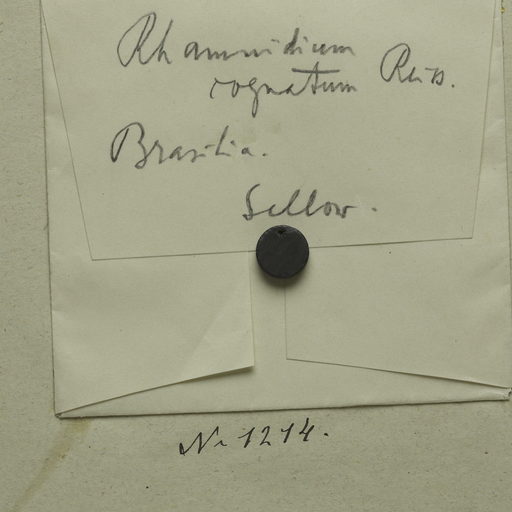 Rhamnidium
cognatum Reiss.
Brasilia.
Sellow.
No 1214.